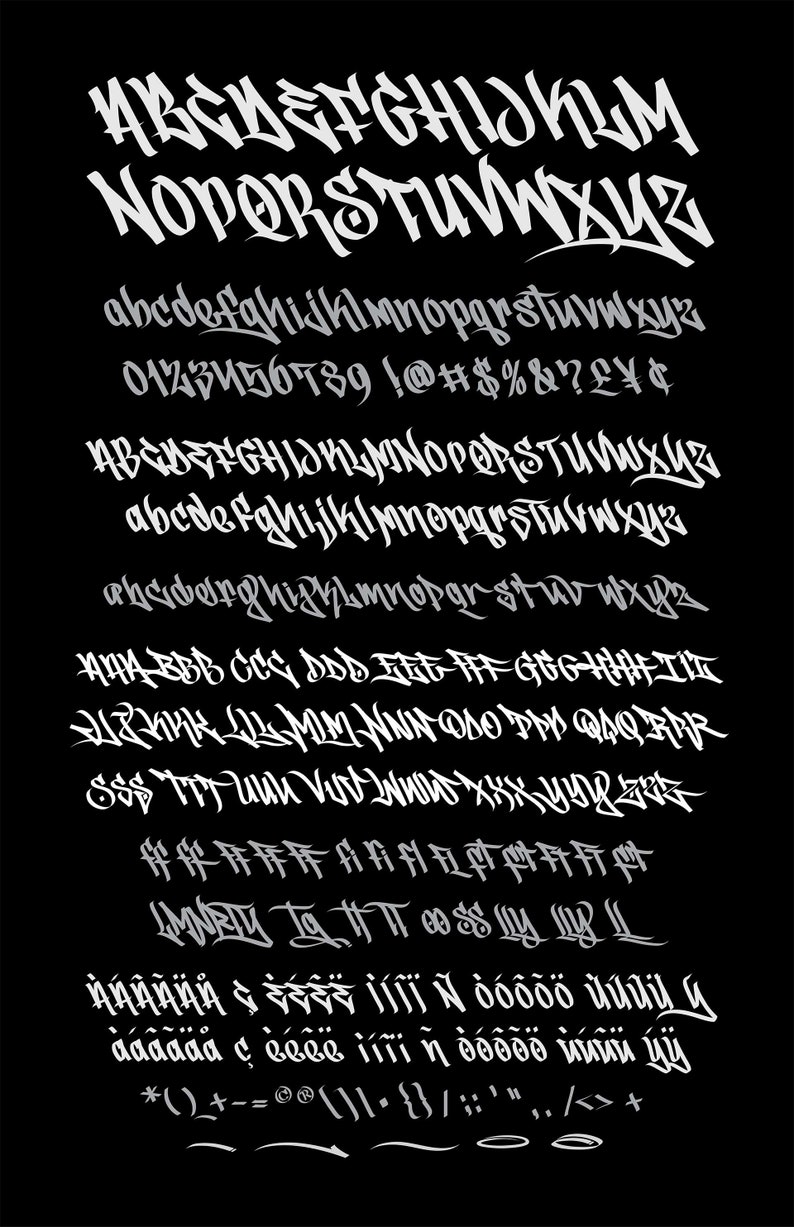 ABCDEFGHIJKLM
NOPQRSTUVWXYZ
abcdefghijklmnopqrstuvwxyz
0123456789 !@#$%&?£¥¢
ABCDEFGHIJKLMNOPQRSTUVWXYZ
abcdefghijklmnopqrstuvwxyz
abcdefghijklmnopqrstuvwxyz
AAA BBB CCC DDD EEE FFF GGG HHH III
JJJ KKK LLL MMM NNN OOO PPP QQQ RRR
SSS TTT UUU VVV WWW XXX YYY ZZZ
ÀÁÂÃÄÅ Ç ÈÉÊË ÌÍÎÏ Ñ ÒÓÔÕÖ ÙÚÛÜ
àáâãäå ç èéêë ìíîï ñ òóôõö ùúûü ýÿ
*()_+-=©®\)|•{}/:;'",./<> +